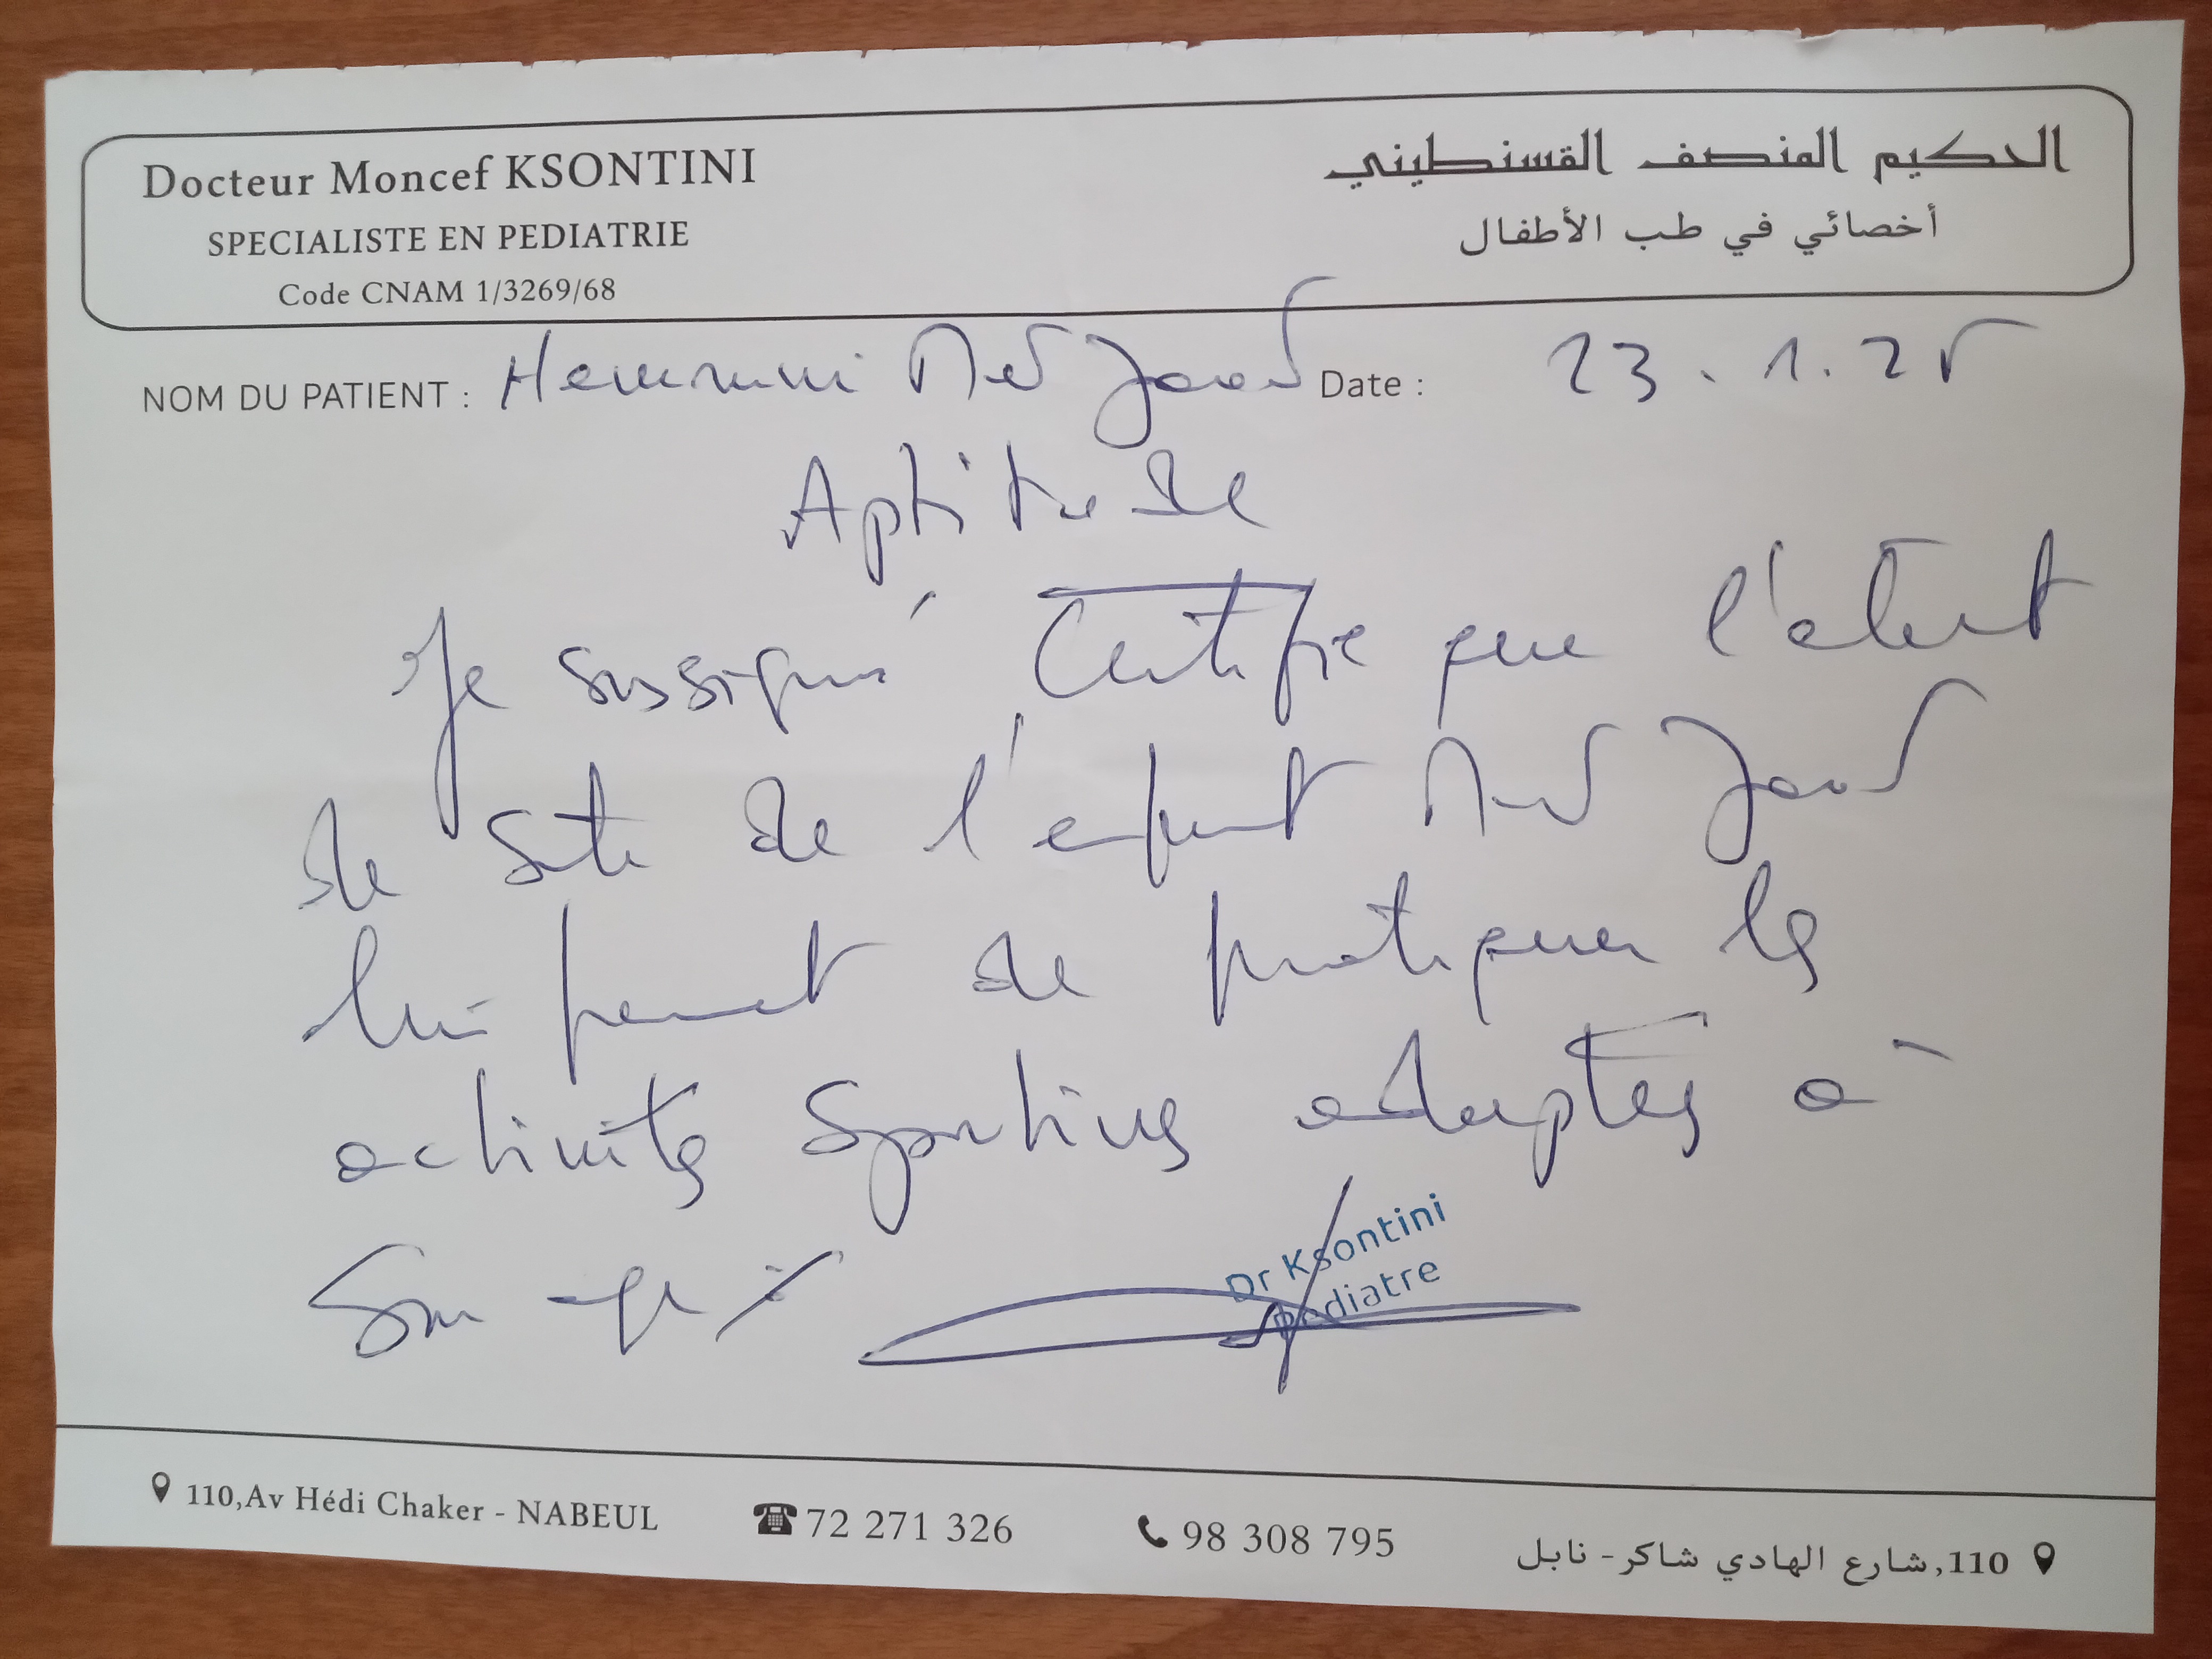 Docteur Moncef KSONTINI
SPECIALISTE EN PEDIATRIE
Code CNAM 1/3269/68
الحكيم المنصف القسنطيني
أخصائي في طب الأطفال
NOM DU PATIENT : Med Jaoud Date : 23.1.25
Aptitude
Je sussigné Certifie que l'etat
de sante de l'enfant Med Jaoud
lui permet de pratiquer les
activités sportives adaptés à
Son age
Dr Ksontini
pediatre
110,Av Hédi Chaker - NABEUL 72 271 326 98 308 795 110,شارع الهادي شاكر- نابل